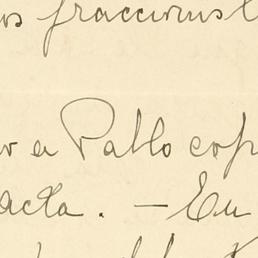 os fraccionist
r a Pablo cop
acta. — En